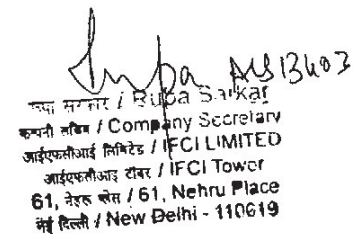 Rupa ACS 13403
रूपा सरकार / Rupa Sarkar
कम्पनी सचिव / Company Secretary
आईएफसीआई लिमिटेड / IFCI LIMITED
आईएफसीआई टॉवर / IFCI Tower
61, नेहरू प्लेस / 61, Nehru Place
नई दिल्ली / New Delhi - 110619